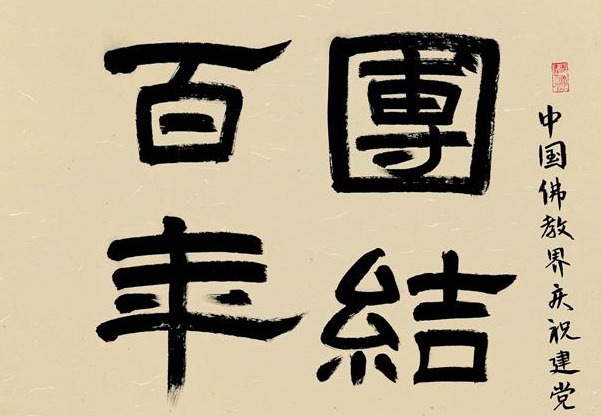 中国佛教界庆祝建党
團結
百年